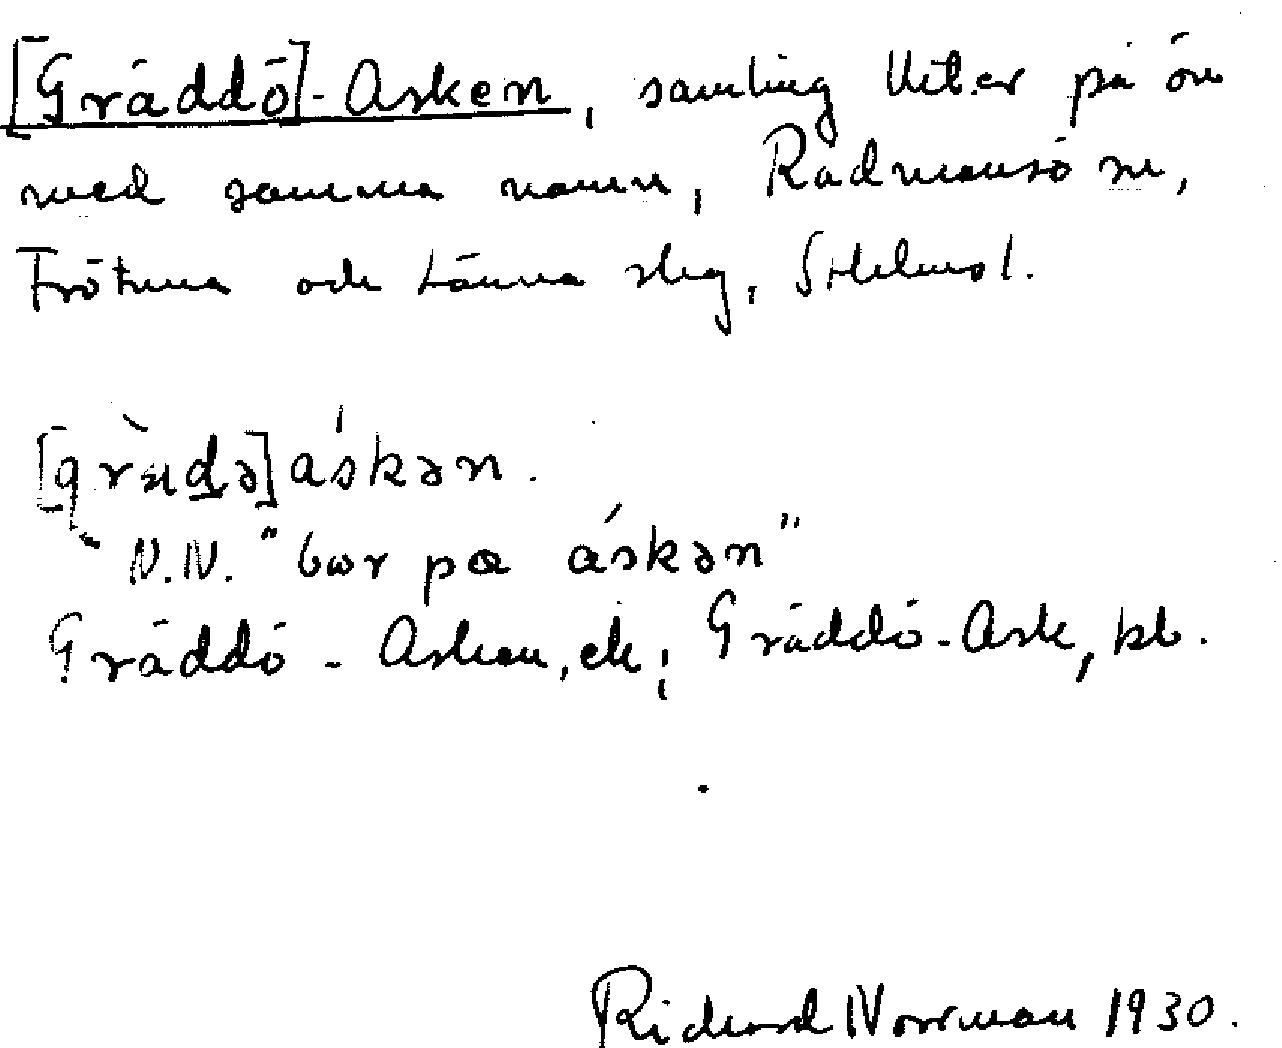 [Gräddö]-Asken, samling lht.er på ön
med samma namn, Rådmansö sn,
Frötuna och Länna slg, Sthlms l.
[grædə]áskən.
N.N. "bor pa áskən"
Gräddö-Asken, ek; Gräddö-Ask, kb.
Richard Norrman 1930.